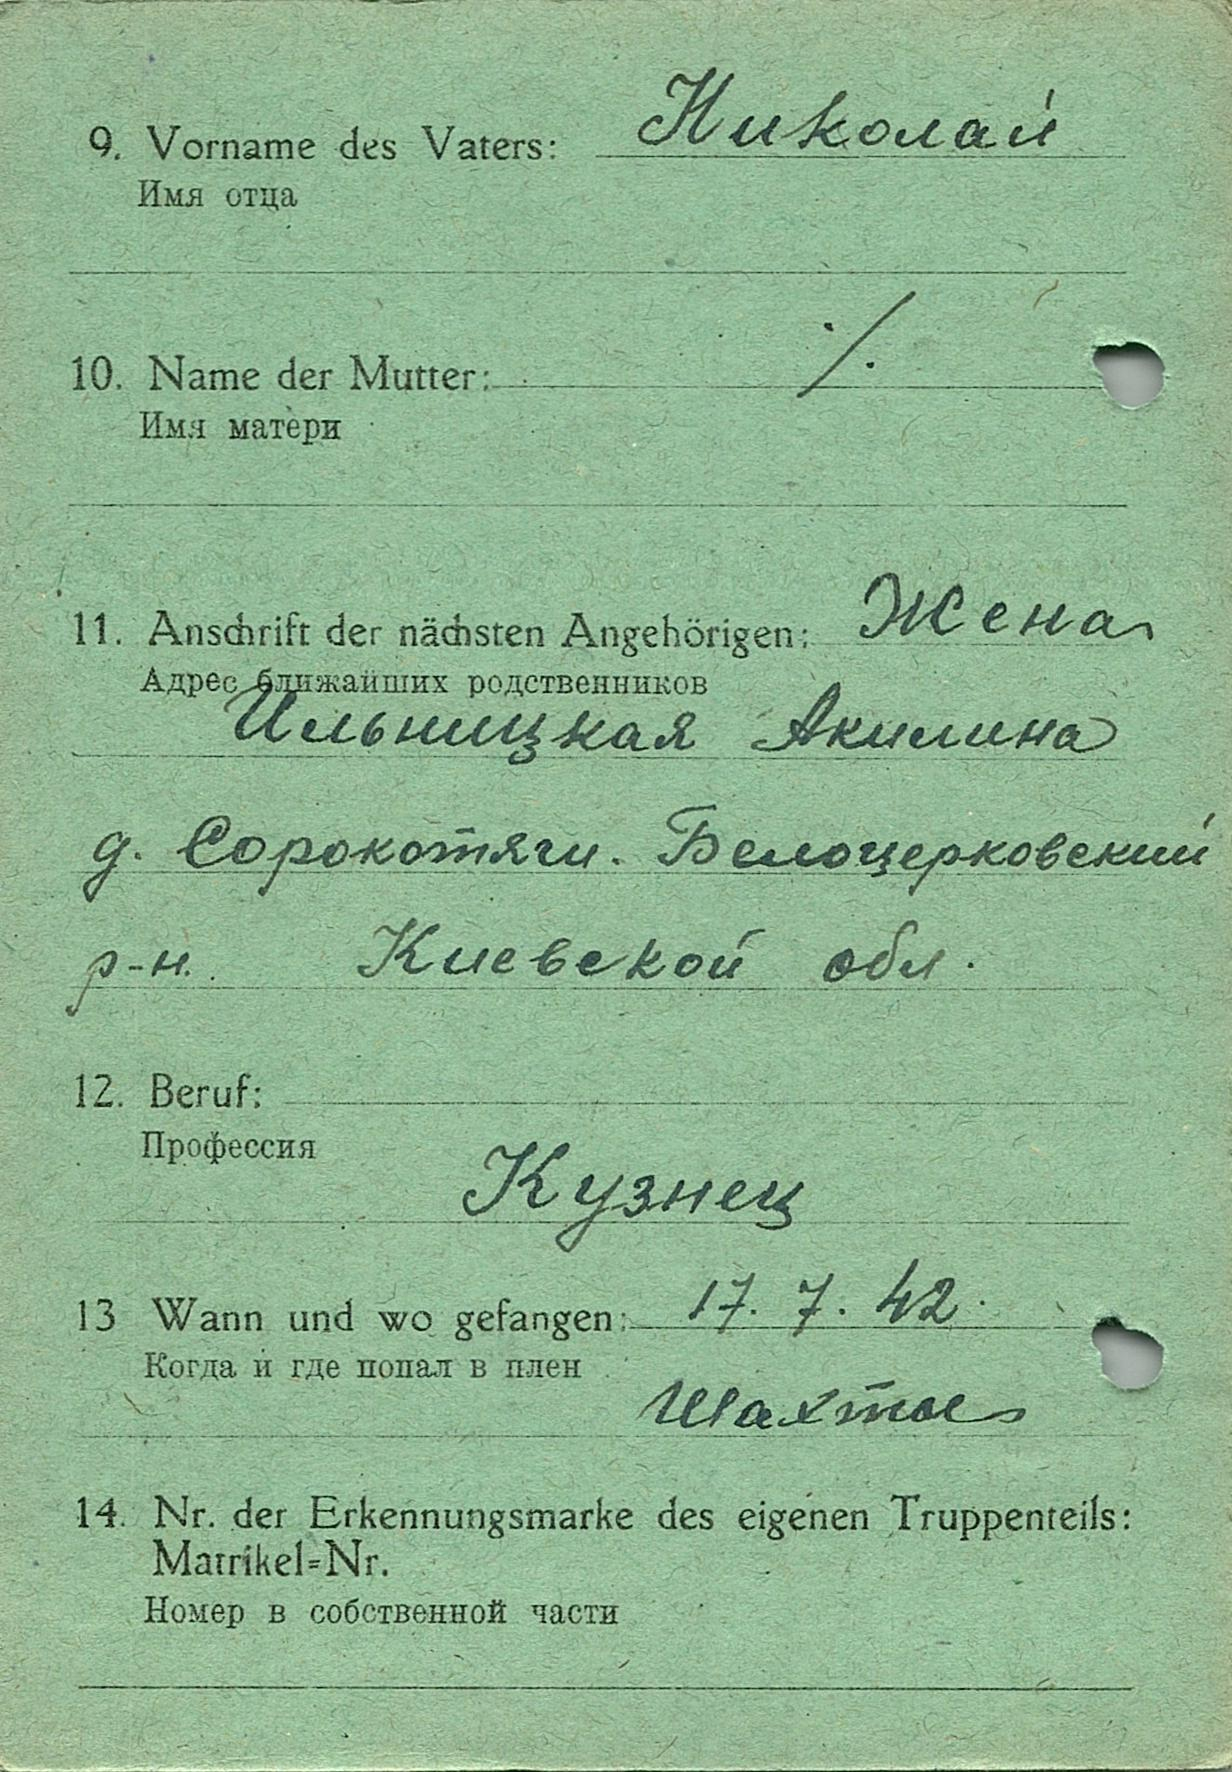 9. Vorname des Vaters: Николай
Имя отца
10. Name der Mutter: ./.
Имя матери
11. Anschrift der nächsten Angehörigen: Жена
Адрес ближайших родственников
Ильницкая Акилина
д. Сорокотяги. Белоцерковский
р-н. Киевской обл.
12. Beruf:
Профессия
Кузнец
13 Wann und wo gefangen: 17. 7. 42.
Когда и где попал в плен
Шахты
14. Nr. der Erkennungsmarke des eigenen Truppenteils:
Matrikel=Nr.
Номер в собственной части